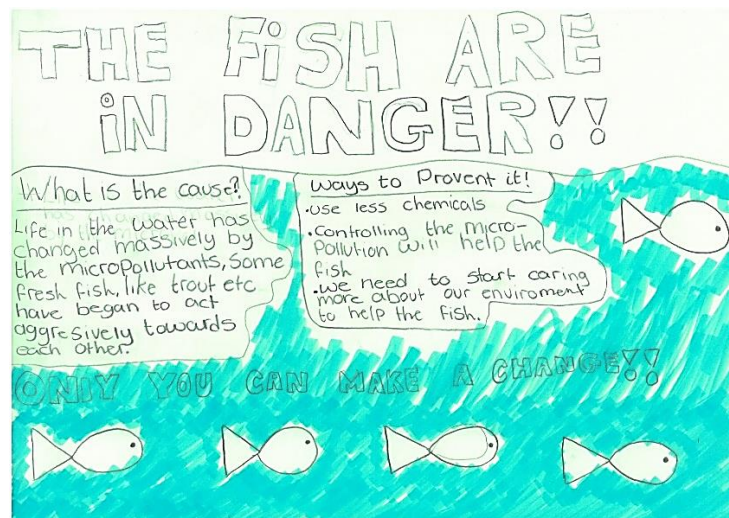 THE FISH ARE
IN DANGER!!
What is the cause?
Life in the water has
changed massively by
the micropollutants, Some
fresh fish, like trout etc
have began to act
aggresively towards
each other.
ways to Provent it!
•use less chemicals
•controlling the micro-
Pollution will help the
fish
•we need to start caring
more about our enviroment
to help the fish.
ONLY YOU CAN MAKE A CHANGE!!